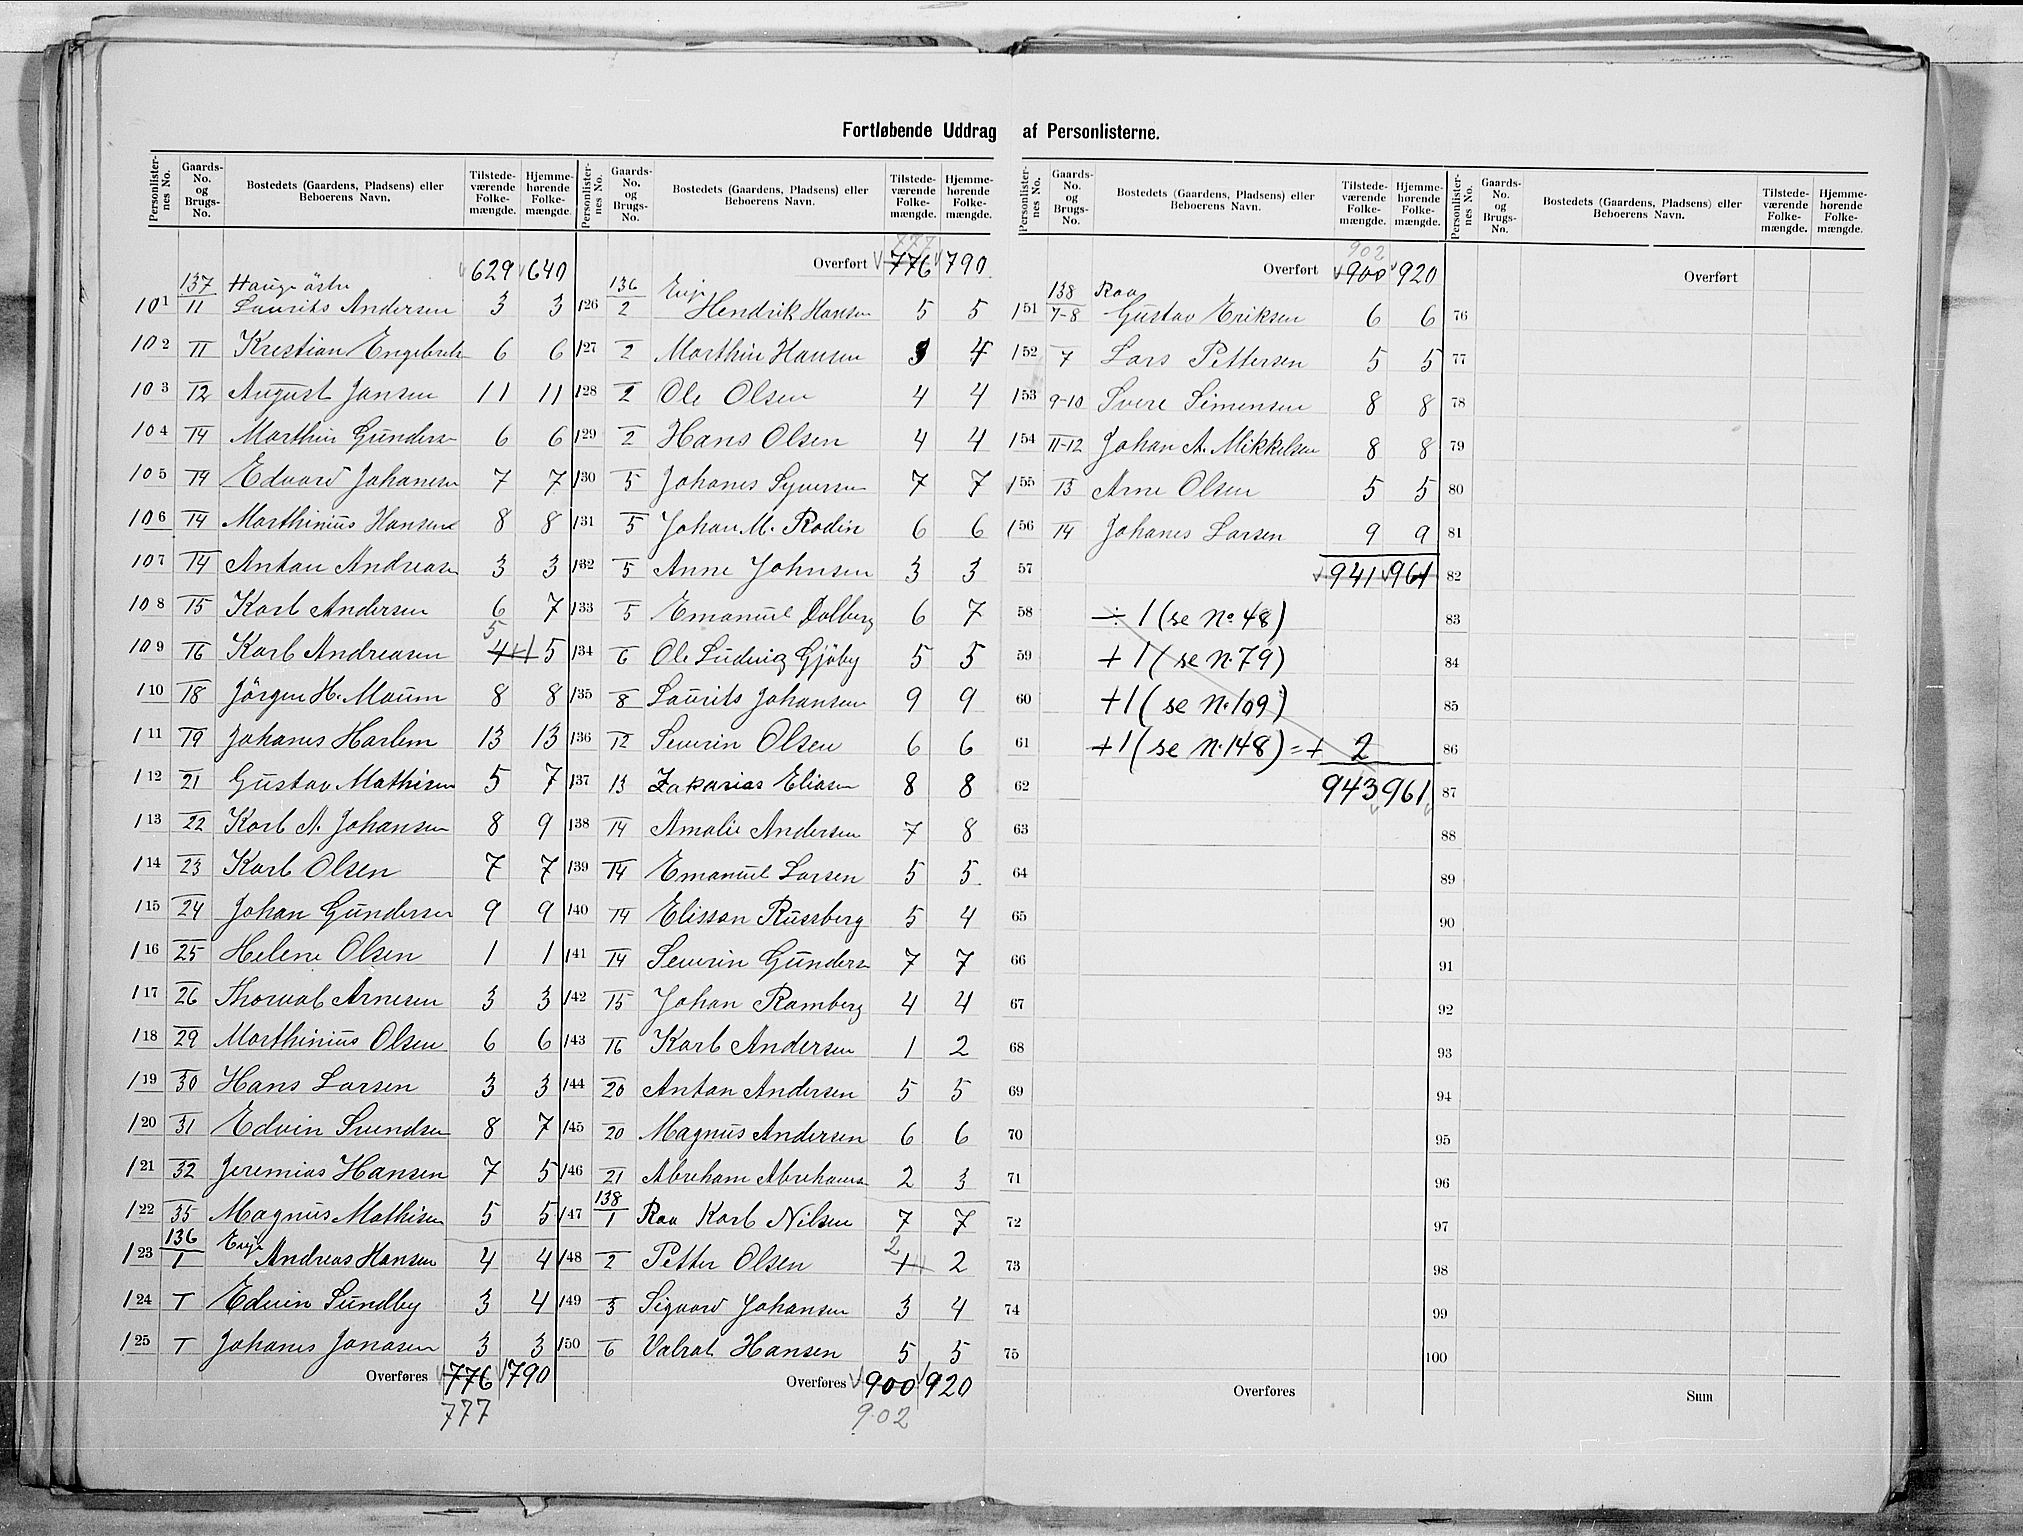 Fortløbende Uddrag af Personlisterne.
Personlister-nes No. | Gaards-No. og Brugs-No. | Bostedets (Gaardens, Pladsens) eller Beboerens Navn. | Tilstede-værende Folke-mængde. | Hjemme-hørende Folke-mængde.
629 640
137 Hauge östre
101 11 Laurits Andersen 3 3
102 11 Kristian Engebrets 6 6
103 12 August Jansen 11 11
104 14 Marthin Gunders 6 6
105 14 Edvard Johansen 7 7
106 14 Marthinius Hansen 8 8
107 14 Anton Andreasn 3 3
108 15 Karl Andersen 6 7
109 16 Karl Andreasen 4+1 5 5
110 18 Jörgen H. Maum 8 8
111 19 Johanes Harlem 13 13
112 21 Gustav Mathisen 5 7
113 22 Karl A. Johansen 8 9
114 23 Karl Olsen 7 7
115 24 Johan Gundersen 9 9
116 25 Helene Olsen 1 1
117 26 Thorval Arnesen 3 3
118 29 Marthinius Olsen 6 6
119 30 Hans Larsen 3 3
120 31 Edvin Svendsen 8 7
121 32 Jeremias Hansen 7 5
122 35 Magnus Mathisen 5 5
136
123 1 Enge Andreas Hansen 4 4
124 1 Edvin Sundby 3 4
125 1 Johanes Jonasen 3 3
Overføres 776 790
777
Personlister-nes No. | Gaards-No. og Brugs-No. | Bostedets (Gaardens, Pladsens) eller Beboerens Navn. | Tilstede-værende Folke-mængde. | Hjemme-hørende Folke-mængde.
777
Overført 776 790
136 Enge
126 2 Hendrik Hansen 5 5
127 2 Marthin Hansen 3 4
128 2 Ole Olsen 4 4
129 2 Hans Olsen 4 4
130 5 Johanes Syversen 7 7
131 5 Johan M. Rodin 6 6
132 5 Anne Johnsen 3 3
133 5 Emanuel Dalberg 6 7
134 6 Ole Ludvig Gjöby 5 5
135 8 Laurits Johansen 9 9
136 12 Severin Olsen 6 6
137 13 Zakarias Eliasen 8 8
138 14 Amalie Andersen 7 8
139 14 Emanuel Larsen 5 5
140 14 Elissan Russberg 5 4
141 14 Severin Gunders 7 7
142 15 Johan Ramberg 4 4
143 16 Karl Andersen 1 2
144 20 Anton Andersen 5 5
145 20 Magnus Andersen 6 6
146 21 Abreham Abrehams 2 3
138
147 1 Raa Karl Nilsen 7 7
148 2 Petter Olsen 2 1 2
149 3 Sigvard Johansen 3 4
150 6 Valrat Hansen 5 5
Overføres 900 920
902
Personlister-nes No. | Gaards-No. og Brugs-No. | Bostedets (Gaardens, Pladsens) eller Beboerens Navn. | Tilstede-værende Folke-mængde. | Hjemme-hørende Folke-mængde.
902
Overført 900 920
138 Raa
151 7-8 Gustav Eriksen 6 6
152 7 Lars Pettersen 5 5
153 9-10 Svere Simensen 8 8
154 11-12 Johan A. Mikkelsen 8 8
155 13 Arne Olsen 5 5
156 14 Johanes Larsen 9 9
57 941 961
58 ÷ 1 (se No 48)
59 +1 (se n. 79)
60 +1 (se N. 109)
61 +1 (se n. 148) = + 2
62 943 961
63
64
65
66
67
68
69
70
71
72
73
74
75
Overføres
Personlister-nes No. | Gaards-No. og Brugs-No. | Bostedets (Gaardens, Pladsens) eller Beboerens Navn. | Tilstede-værende Folke-mængde. | Hjemme-hørende Folke-mængde.
Overført
76
77
78
79
80
81
82
83
84
85
86
87
88
89
90
91
92
93
94
95
96
97
98
99
100
Sum